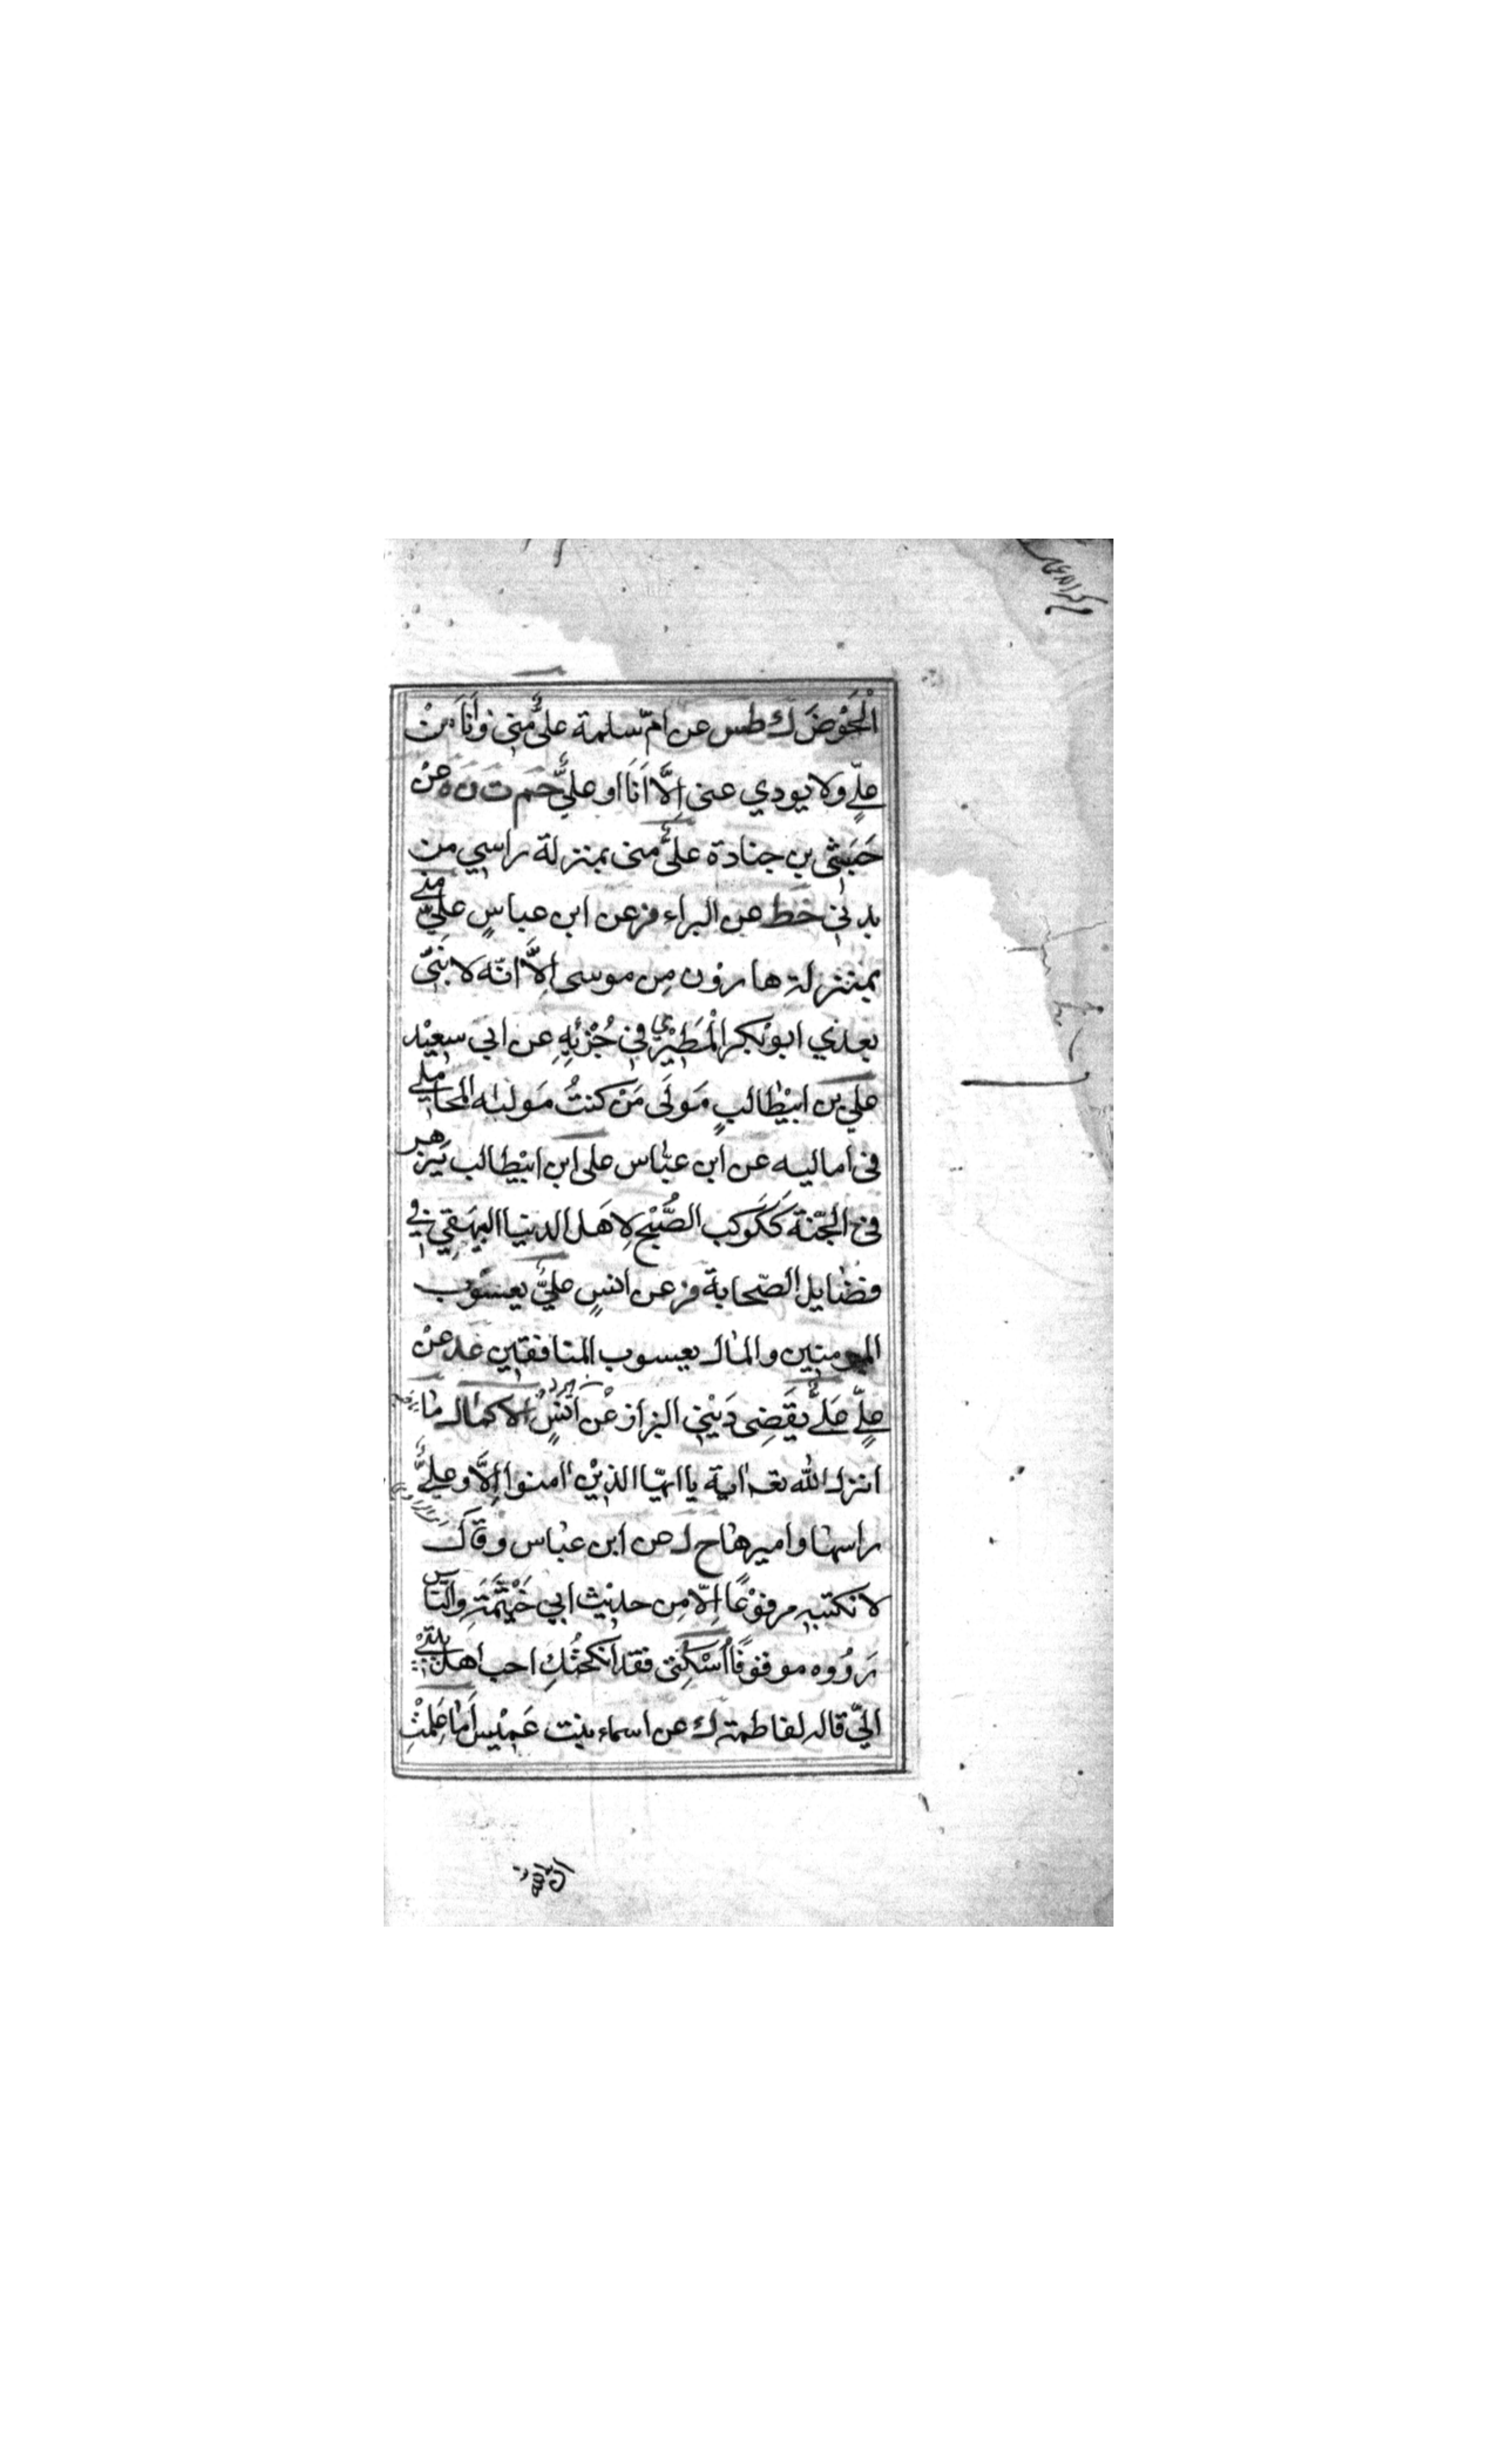 الْحَوْضَ ك طس عن امّ سلمة عليٌّ منى وَأَنَا مِنْ
عليٍّ ولا يودي عنى اِلَّا اَنَا او عليٌّ حم ت ن ه عنْ
حَبَشى بن جنادة عليٌّ منى بمنزلة راسي من
بدنى خط عن البراء فر عن ابن عباسٍ عليٌّ منى
بمنزلة هارون مِن موسى اِلَّا انّه لا نبىّ
بعدي ابو بكر الْمَطِيْرى فى جُزْئِهِ عن ابى سعِيْد
على بن ابيْطالبٍ مَولَى مَنْ كنتُ مَوليٰه المحاملى
فى اماليه عن ابن عبّاس على ابن ابيْطالب يزهر
فى الجنّة كَكَوكبِ الصُّبْحِ لِاهَل الدنيا البيهقِي فى
فضايل الصّحابة فر عن انسٍ عليٌّ يعسُوب
المومنين والمال يعسوب المنافقين عد عنْ
عليٍّ عَلىٌّ يَقْضِى دَيْنى البزاز عْن انَسٍ الاكمال ما
انزل الله تعـ اٰية يا ايّها الذيْن اٰمنوا اِلَّا وعليٌّ
راسها واميرها حل عن ابن عبّاس وقَالَ
لا نكتبه مرفوْعًا اِلّا مِن حديْث ابي خَيْثَمَةَ والنّاس
رَوُوه موقوفًا اُسْكُتى فقد انكحتُكِ احب اهل بيْتى
اليّ قاله لفاطمة ك عن اسماء بنت عَمِيْس اَمَا عَلِمْتِ